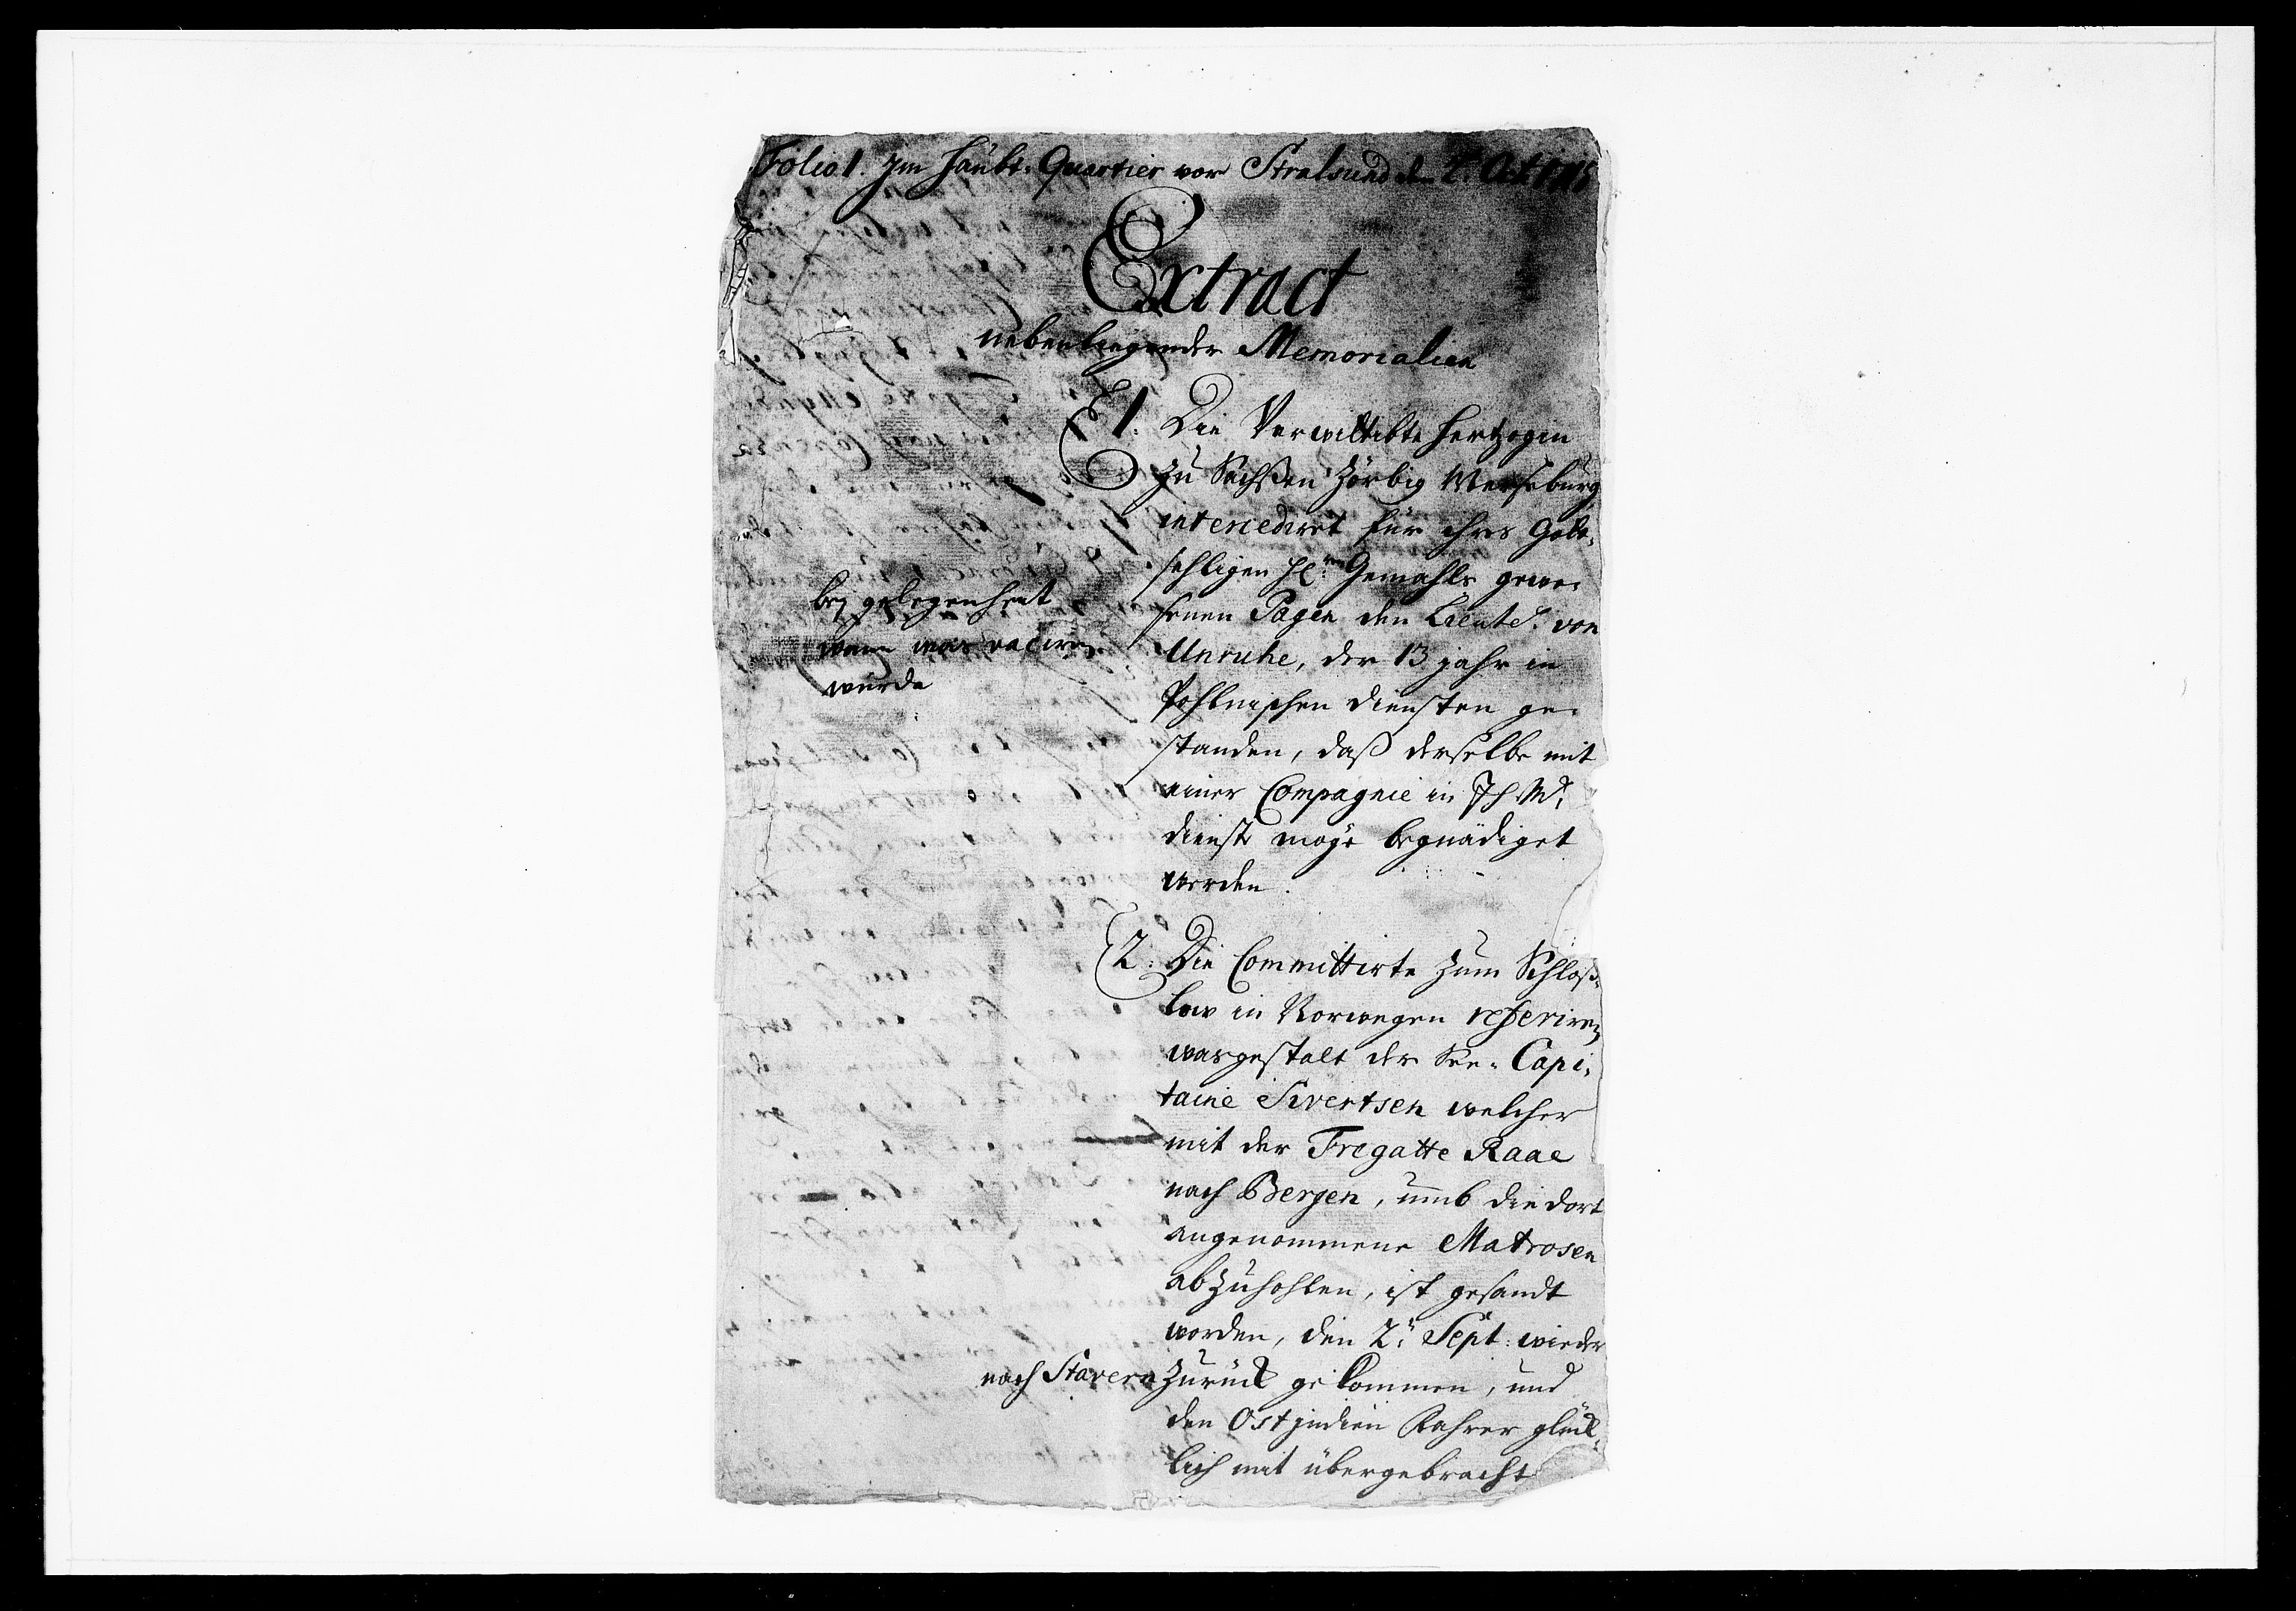 Folio 1. Im Haubt-Quartier vor Stralsund den 2. Oct 1715
Extract
nebenliegender Memorialien
1. Die Verwittibte Hertzogin
zu Sachßen Zörbig Merseburg
intercediret für ihres Gott-
sehligen H. Gemahls gewe-
senen Pagen den Lieut. von
Unruhe, der 13 jahr in
Pohlnischen diensten ge-
standen, daß derselbe mit
einer Compagnie in Ih. M.
dienst möge begnädiget
werden.
bey gelegenheit
wenn was
würde
2. Die Committirte zum Schloß-
low in Norwegen referiren
wasgestalt der See-Capi-
taine Sivertsen welcher
mit der Fregatte Raae
nach Bergen, umb die dort
angenommene Matrosen
abzuhohlen, ist gesandt
worden, den 2. Sept. wieder
nach Stavern zurück gekommen, und
den Ostjndien fahrer glück-
lich mit übergebracht